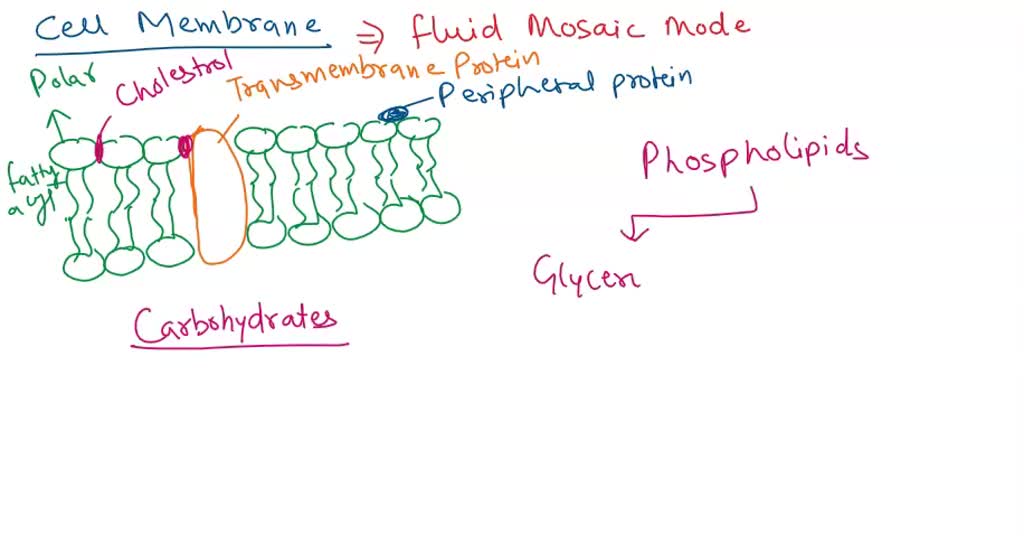 Cell Membrane ⇒ Fluid Mosaic Mode
Polar
Cholestrol
Transmembrane Protein
Peripheral protein
fatty
acyl
Phospholipids
Glycer
Carbohydrates